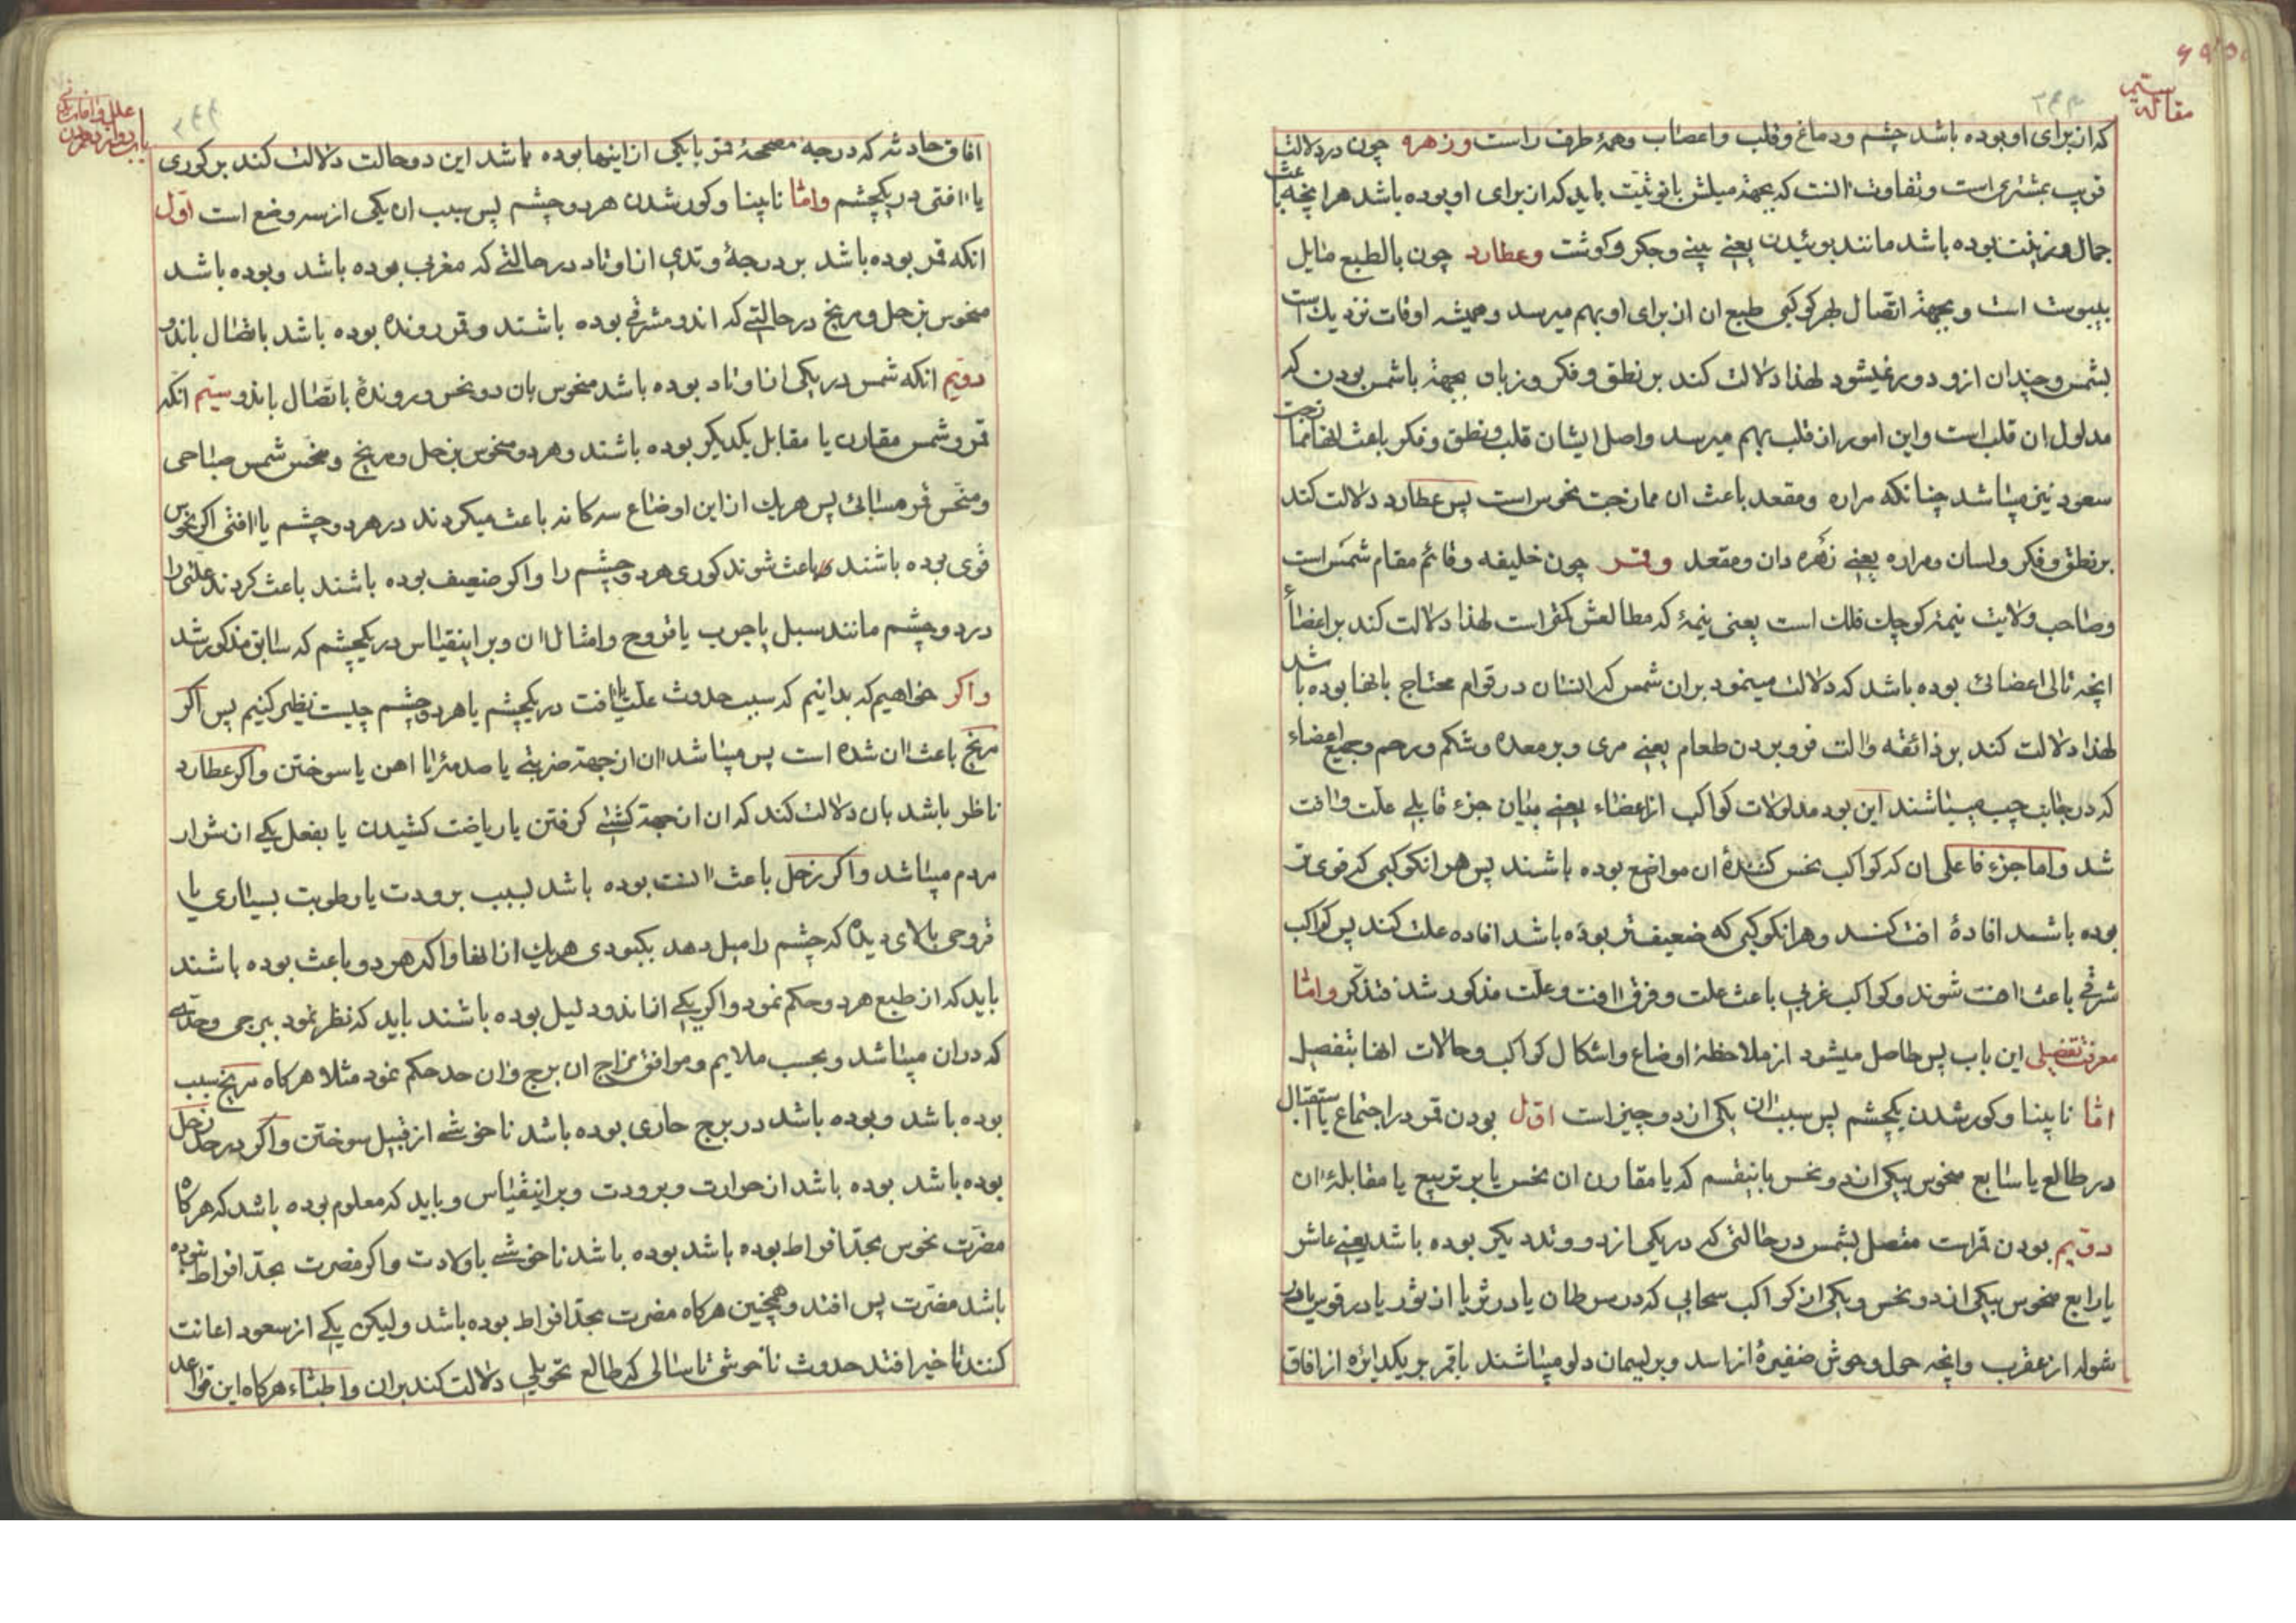 مقاله سیم
که از برای او بوده باشد چشم و دماغ و قلب و اعصاب و همهٔ طرف راست و زهره چون در دلالت
قریب بمشتری است و تفاوت انست که بجهة میلش بانوثیت باید که از برای او بوده باشد هر انچه باعث
جمال و زینت بوده باشد مانند بوئیدن یعنے بینے و جکر و کوشت و عطارد چون بالطبع مایل
بیبوست است و بجهة اتصال بهر کوکبی طبع ان از برای او بهم میرسد و همیشه اوقات نزدیك است
بشمس و چندان ازو دور نمیشود لهذا دلالت کند بر نطق و فکر و زبان بجهة با شمس بودن که
مدلول ان قلب است و این امور از قلب بهم میرسد و اصل ایشان قلب و نطق و فکر باعث انها ممازجت
سعود نیز میباشد چنانکه مراره و مقعد باعث ان ممازجت نحوس است پس عطارد دلالت کند
بر نطق و فکر و لسان و مراره یعنے زهره دان و مقعد و قمر چون خلیفه و قائم مقام شمس است
و صاحب ولایت نیمهٔ کوچك فلك است یعنی نیمهٔ که مطالعش کمتر است لهذا دلالت کند بر اعضاء
انچه تالی اعضائی بوده باشد که دلالت مینمود بر ان شمس که انسان در قوام محتاج بانها بوده باشد
لهذا دلالت کند بر ذائقه و الت فرو بردن طعام یعنے مری و بر معده و شکم و رحم و جمیع اعضاء
که در جانب چپ میباشند این بود مدلولات کواکب از اعضاء یعنے بیان جزء قابلے علت و افت
شد و اما جزء فاعلی ان که کواکب نحس کنندهٔ ان مواضع بوده باشند پس هر انکوکبی که قوی تر
بوده باشند افادهٔ افت کنند و هر انکوکبی که ضعیفتر بوده باشد افاده علت کند پس کواکب
شرقے باعث افت شوند و کواکب غربے باعث علت و فرق افت و علت مذکور شد فتذکر و اما
معرفت تفصیلی این باب پس حاصل میشود از ملاحظهٔ اوضاع و اشکال کواکب و حالات انها بتفصیل
اما نابینا و کور شدن یکچشم پس سبب ان یکی از دو چیز است اول بودن قمر در اجتماع یا استقبال
در طالع یا سابع منحوس بیکی از دو نحس باینقسم که یا مقارن ان نحس یا بر تربیع یا مقابلهٔ ان
دویم بودن قمر است متصل بشمس در حالتی که در یکی از دو وتد دیکر بوده باشد یعنے عاشر
یا رابع منحوس بیکی از دو نحس و یکی از کواکب سحابی که در سرطان یا در ثریا از ثور یا در قوس یا در
شوله از عقرب و انچه حول و حوش ضفیرهٔ از اسد و بر لیمان دلو میباشند با قمر بر یکدایره از افاق
علل و افات بدنی
افاق حادثه که درجهٔ مصححهٔ قمر با یکی از اینها بوده باشد این دو حالت دلالت کند بر کوری
یا افتی در یکچشم و اما نابینا و کور شدن هر دو چشم پس سبب ان یکی از سه وضع است اول
انکه قمر بوده باشد بر درجهٔ وتدی از اوتاد در حالتے که مغربی بوده باشد و بوده باشد
منحوس بزحل و مریخ در حالتے که اندو مشرقے بوده باشند و قمر رونده بوده باشد باتصال باندو
دویم انکه شمس در یکی از اوتاد بوده باشد منحوس بان دو نحس و روندهٔ باتصال باندو سیم انکه
قمر و شمس مقارن یا مقابل یکدیکر بوده باشند و هر دو منحوس بزحل و مریخ و منحس شمس صباحی
و منحس قمر مسائی پس هر یك از این اوضاع سه کانه باعث میکردند در هر دو چشم یا افتی اکر نحوس
قوی بوده باشند باعث شوند کوری هر دو چشم را و اکر ضعیف بوده باشند باعث کردند علتی را
در دو چشم مانند سبل یا جرب یا قروح و امثال ان و بر اینقیاس در یکچشم که سابق مذکور شد
و اکر خواهیم که بدانیم که سبب حدوث علت یا افت در یکچشم یا هر دو چشم چیست نظر کنیم پس اکر
مریخ باعث ان شده است پس میباشد ان از جهة ضربتے یا صدمهٔ یا اهن یا سوختن و اکر عطارد
ناظر باشد بان دلالت کند که ان از جهة کشتے کرفتن یا ریاضت کشیدن یا بفعل یکے از شرار
مردم میباشد و اکر زحل باعث انست بوده باشد بسبب برودت یا رطوبت بسیاری یا
قروحی بالای دیده که چشم را میل دهد بکبودی هر یك از انها و اکر هر دو باعث بوده باشند
باید که از طبع هر دو حکم نمود و اکر یکے از اندو دلیل بوده باشند باید که نظر نمود ببرجی و حدی
که در ان میباشد و بحسب ملایم و موافق مزاج ان برج و ان حد حکم نمود مثلا هرکاه مریخ سبب
بوده باشد و بوده باشد در برج حاری بوده باشد ناخوشے از قبیل سوختن و اکر در حد زحل
بوده باشد بوده باشد از حرارت و برودت و بر اینقیاس و باید که معلوم بوده باشد که هرکاه
مضرت نحوس بحد افراط بوده باشد بوده باشد ناخوشے باولادت و اکر مضرت بحد افراط نبوده
باشد مضرت پس افتد و همچنین هرکاه مضرت بحد افراط بوده باشد و لیکن یکے از سعود اعانت
کنند تاخیر افتد حدوث ناخوشی تا سالی که طالع تحویلے دلالت کند بران و اطباء هرکاه این قواعد